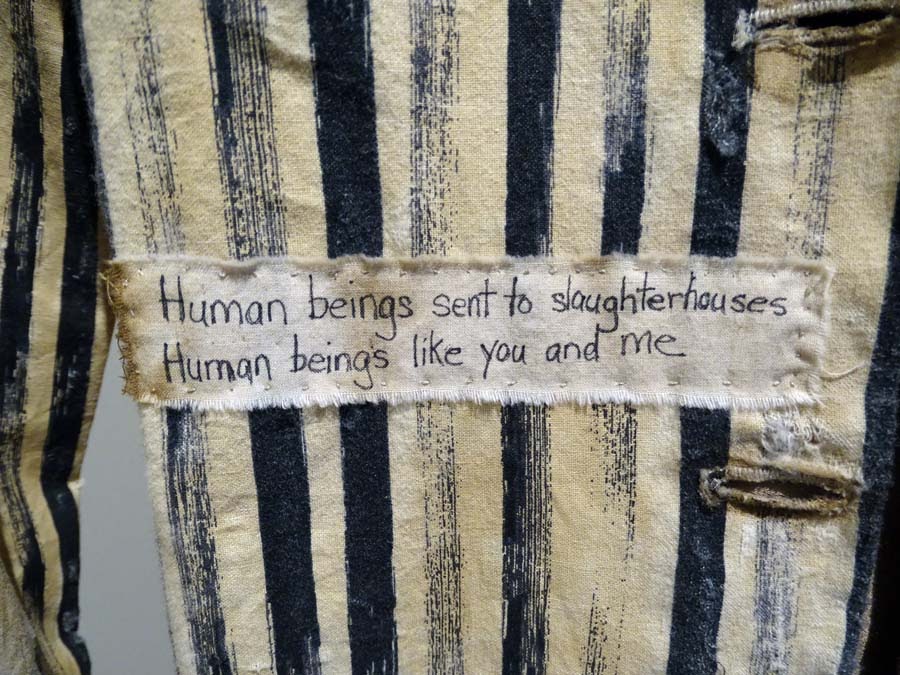 Human beings sent to slaughterhouses
Human beings like you and me